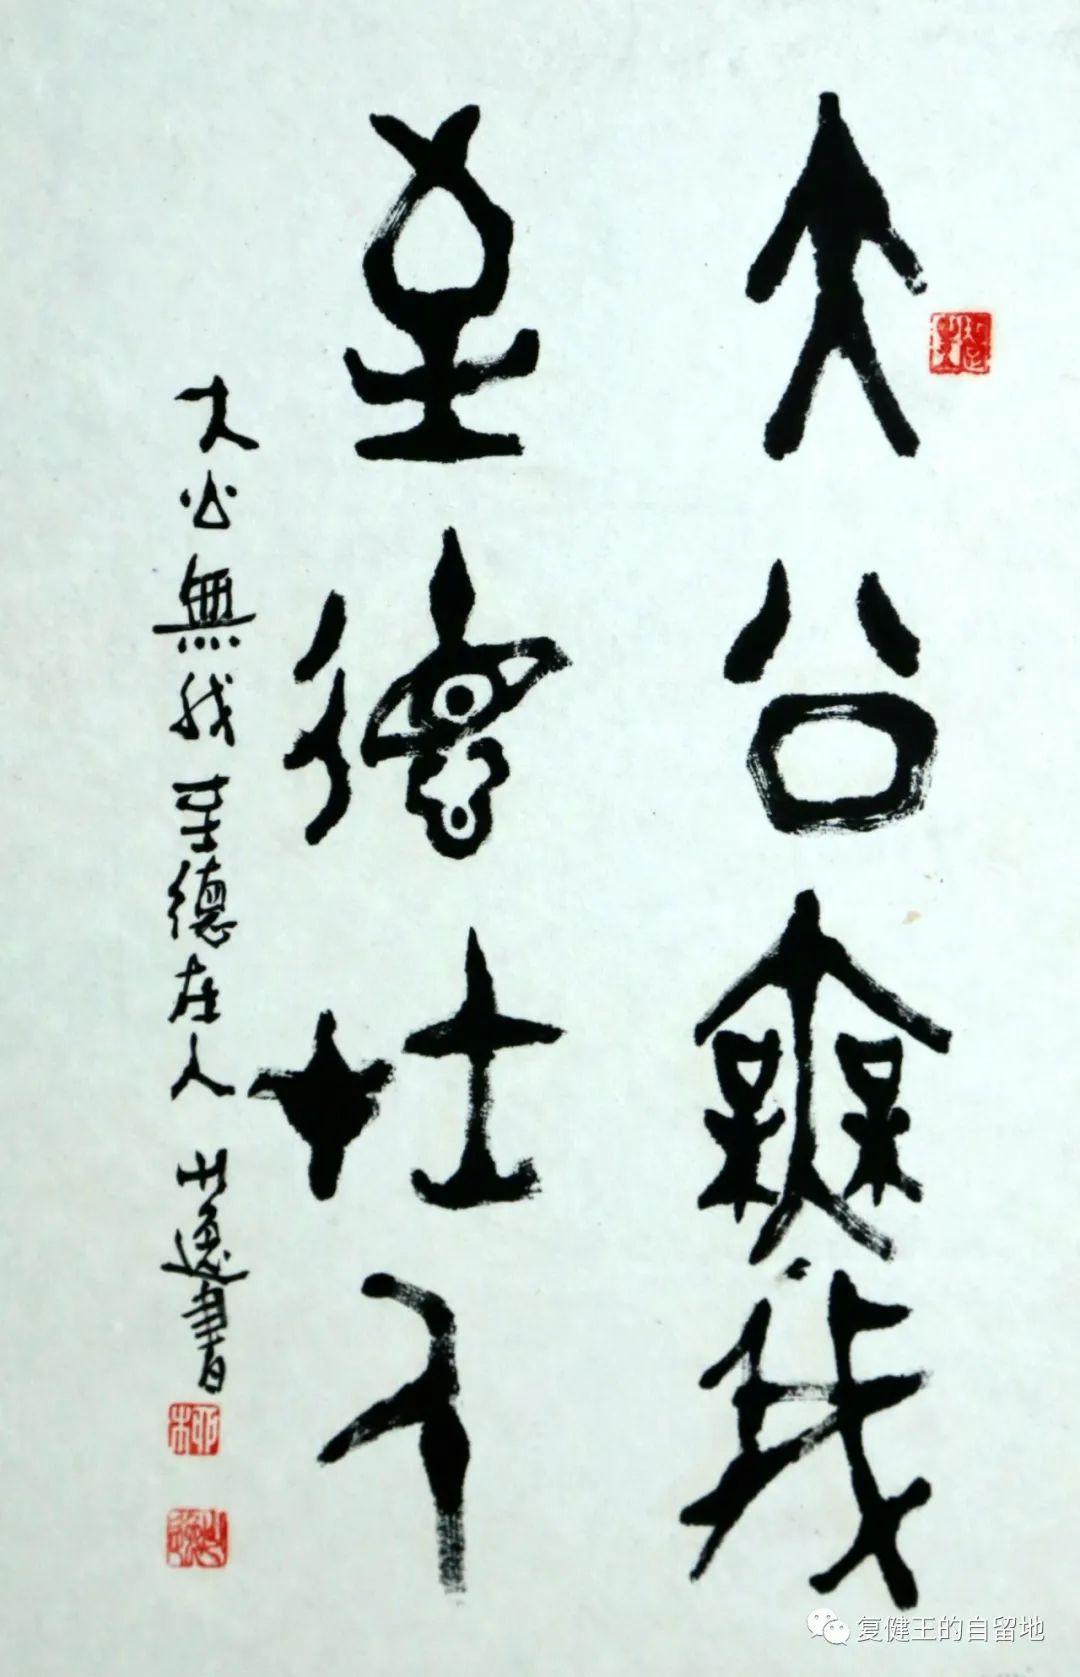 大公無我
至德在人
大公無我至德在人 山逸書
柳
复健王的自留地